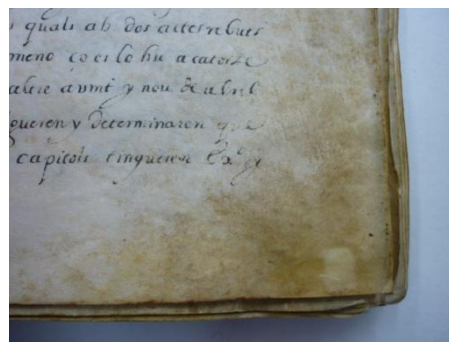 quals ab dos actes rebuts
meno ço es lo hu a catorse
altre a vint y nou de abril
gueren y determinaren que
capitols tinguesen